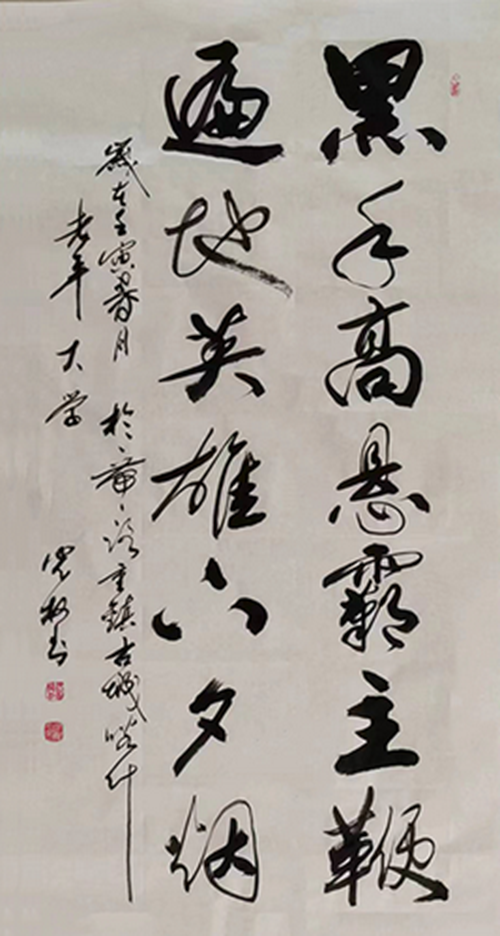 黑手高悬霸主鞭
遍地英雄下夕烟
岁在壬寅暑月 於 重镇古城喀什
老年大学
书